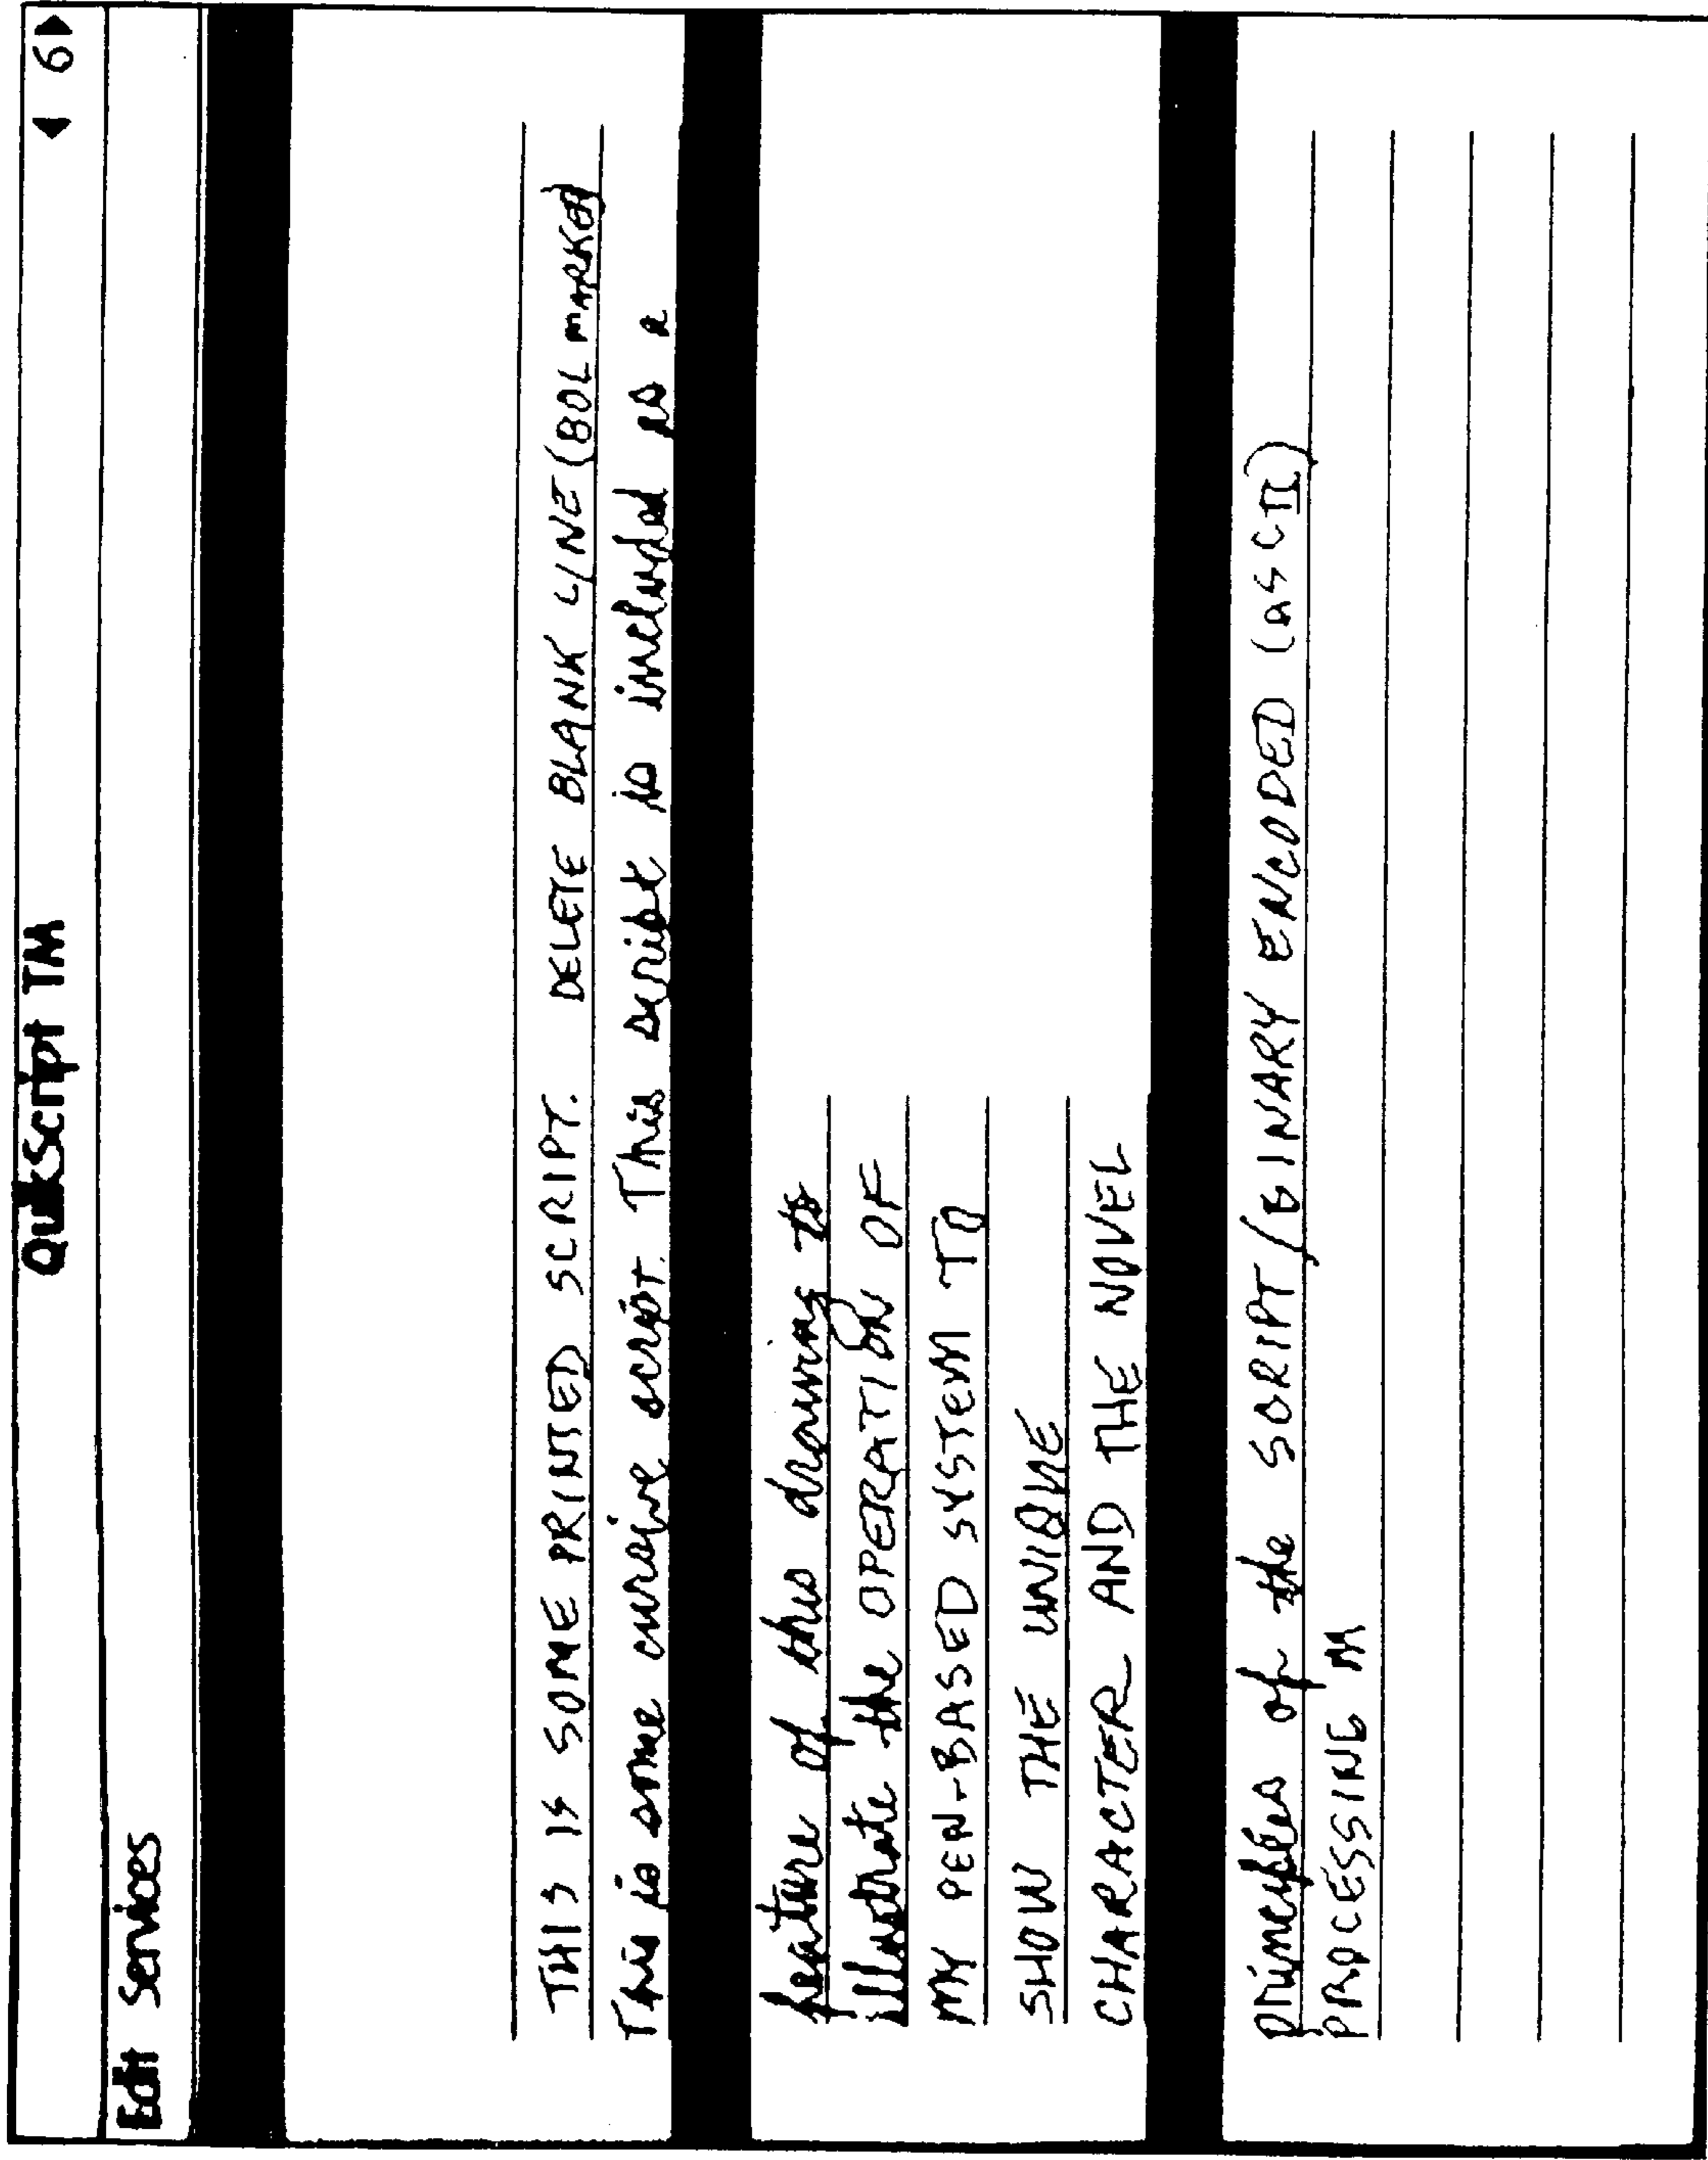 QuikScript TM
◀ 6▶
Edit Services
THIS IS SOME PRINTED SCRIPT. DELETE BLANK LINE (BOL MARKED
This is some cursive script. This script is included as a
feature of this drawing to
illustrate the OPERATION OF
MY PEN-BASED SYSTEM TO
SHOW THE UNIQUE
CHARACTER AND THE NOVEL
principles of the SCRIPT/BINARY ENCODED (ASCII)
PROCESSING M